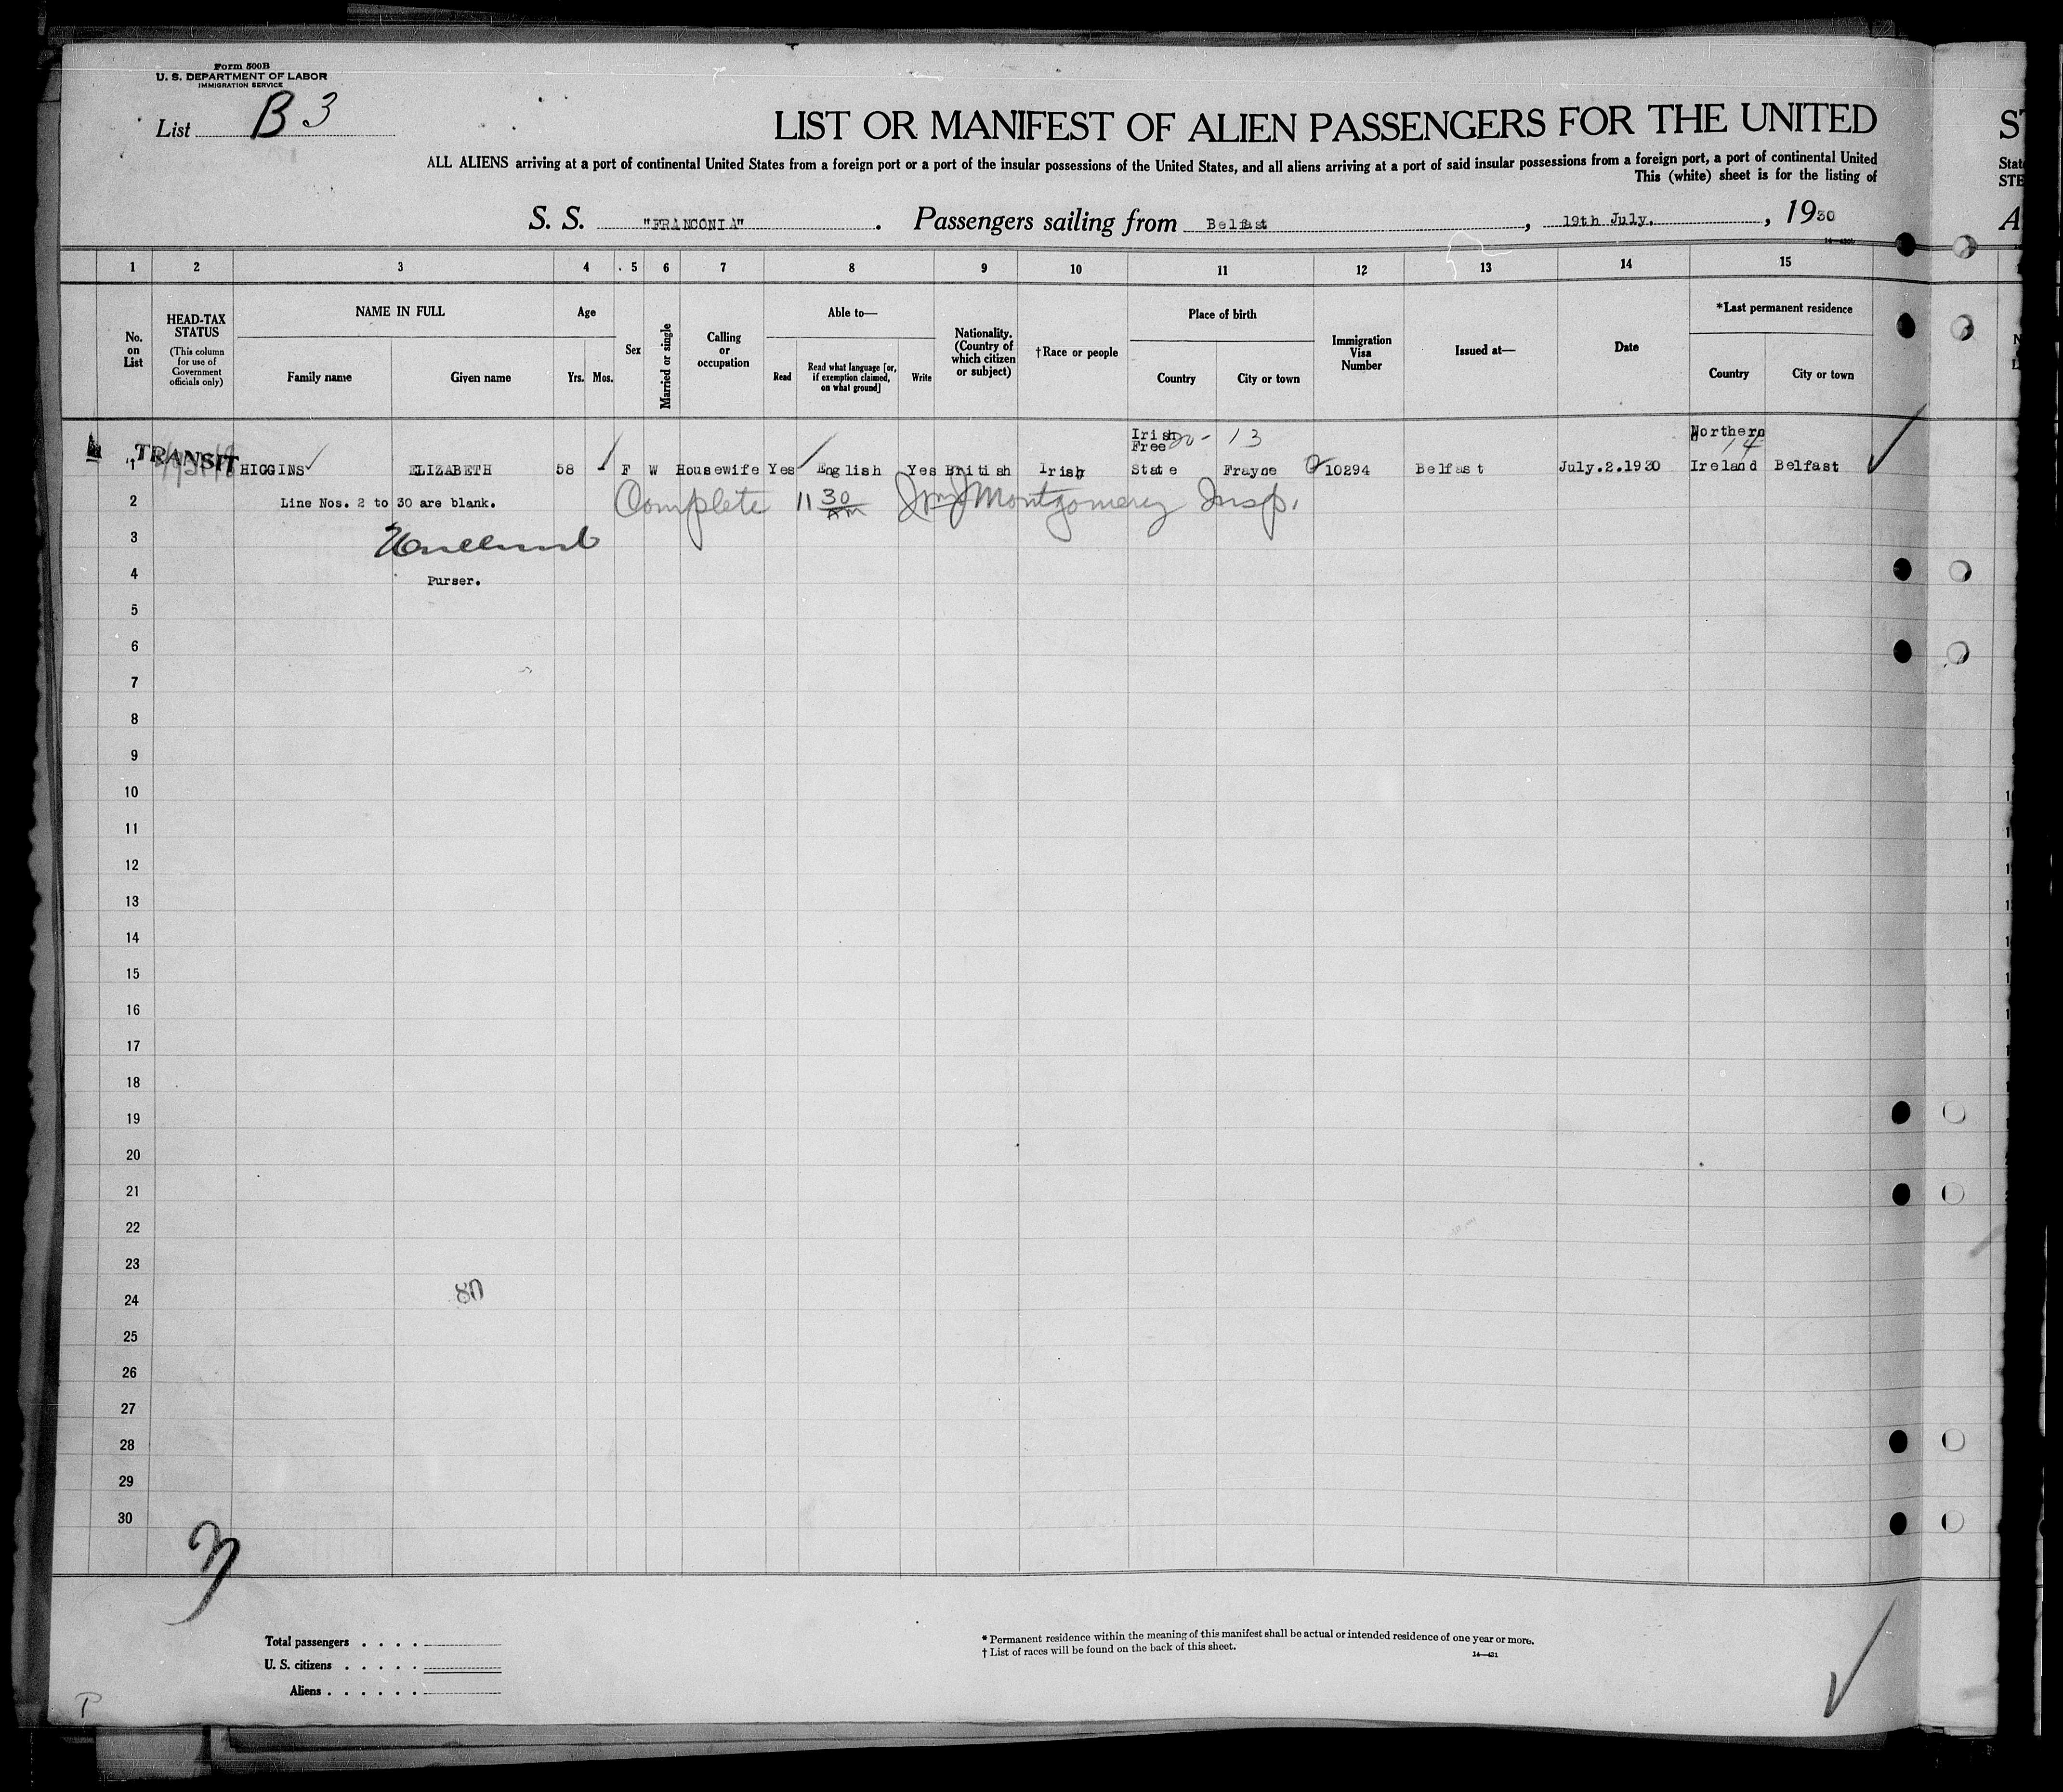 Form 500B
U. S. DEPARTMENT OF LABOR
IMMIGRATION SERVICE
List B 3
LIST OR MANIFEST OF ALIEN PASSENGERS FOR THE UNITED
ALL ALIENS arriving at a port of continental United States from a foreign port or a port of the insular possessions of the United States, and all aliens arriving at a port of said insular possessions from a foreign port, a port of continental United
This (white) sheet is for the listing of
S. S. "FRANCONIA". Passengers sailing from Belfast, 19th July., 1930
1 2 3 4 5 6 7 8 9 10 11 12 13 14 15
No. on List
HEAD-TAX STATUS
(This column for use of Government officials only)
NAME IN FULL
Family name Given name
Age
Yrs. Mos.
Sex
Married or single
Calling or occupation
Able to—
Read
Read what language [or, if exemption claimed, on what ground]
Write
Nationality. (Country of which citizen or subject)
†Race or people
Place of birth
Country City or town
Immigration Visa Number
Issued at—
Date
*Last permanent residence
Country City or town
1 TRANSIT HIGGINS ELIZABETH 58 F W Housewife Yes English Yes British Irish Irish Free State Frayne 10294 Belfast July.2.1930 Northern Ireland Belfast
20- 13
14
2 Line Nos. 2 to 30 are blank. Complete 11 30 AM Montgomery Insp.
3
4 Purser.
5
6
7
8
9
10
11
12
13
14
15
16
17
18
19
20
21
22
23
24 80
25
26
27
28
29
30
Total passengers
U. S. citizens
Aliens
* Permanent residence within the meaning of this manifest shall be actual or intended residence of one year or more.
† List of races will be found on the back of this sheet.
14—431